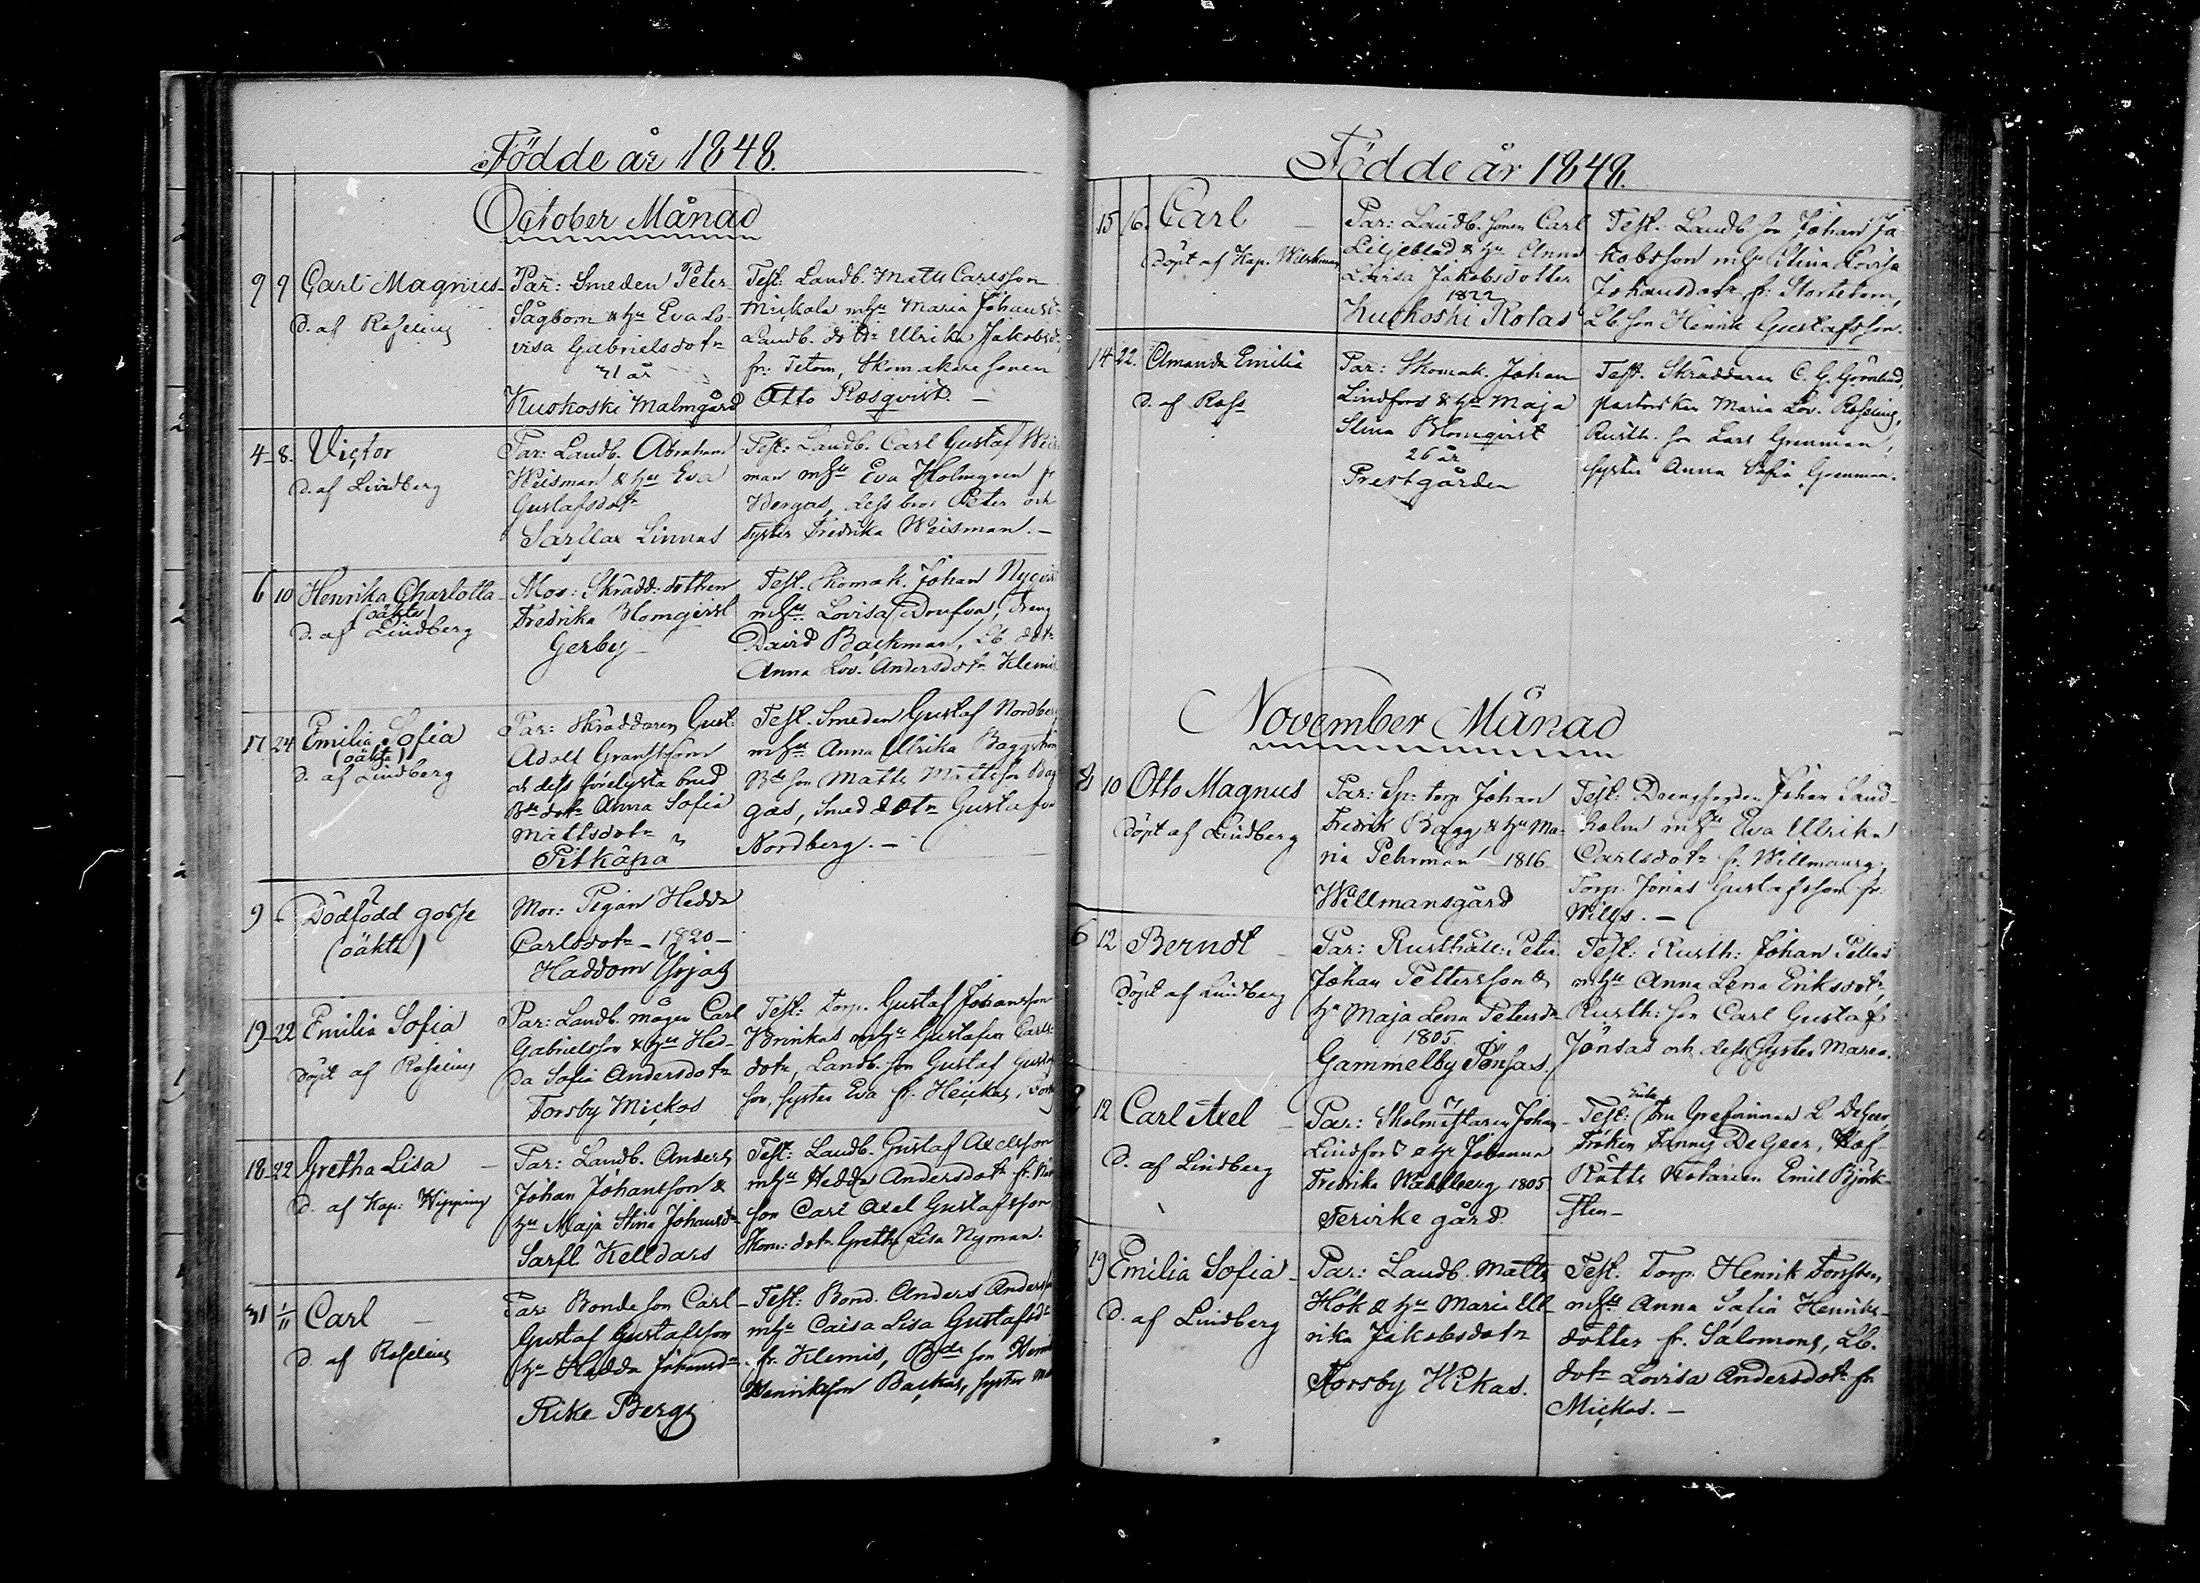 Födde år 1848.
October Månad
9 9 Carl Magnus
D. af Roselius
Par: Smeden Peter
Sågbom & Hu Eva Lo-
visa Gabrielsdotr
31 år
Kuskoski Malmgård
Test: Landb. Matts Carlsson
Mickola mhu Maria Johansd
Landb. dotr Ulrika Jakobsd.
fr. Tetom, Skomakare sonen
Otto Rosqvist. –
4 8. Victor
D. af Lindberg
Par: Landb. Abraham
Weisman & hu Eva
Gustafsdotr
Särflax Linnas
Test: Landb. Carl Gustaf
man mhu Eva Holmgren fr
dess bror Peter och
syster Fredrika Weisman. –
6 10 Henrika Charlotta
(oäkta)
D. af Lindberg
Mor: Skrädd. dottren
Fredrika Blomqvist
Gerby –
Test. Skomak. Johan Nyqvist
mhu Lovisa Dreng
David Backman, Lb. dotr
Anna Lov. Andersdotr Klemis
17 24 Emilia Sofia
(oäkta)
D. af Lindberg
Par: Skräddaren Gust.
Adolf Granström
och dess förelysta brud
Bde dotr Anna Sofia
Mattsdotr
Pitkäpä
Test. Smeden Gustaf Nordberg
mhu Anna Ulrika Baggström
Bde son Matts Mattsson Bag
gas, Smed dotr Gustafva
Nordberg. –
9 Dödfödd gosse
(oäkta)
Mor: Pigan Hedda
Carlsdotr – 1820 –
Haddom Yrjas
19 22 Emilia Sofia
Döpt af Roselius
Par: Landb. mågen Carl
Gabrielsson & hu Hed-
da Sofia Andersdotr
Forsby Mickos
Test: Torp. Gustaf Johansson
Brinkas mhu Gustafva Carls-
dotr, Landb. son Gustaf Gustafs
son, syster Eva fr. Heickas,
18 22 Gretha Lisa
D. af Kap. Wipping
Par: Landb. Anders
Johan Johansson &
hu Maja Stina Johansdr
Sarfl. Kelldars
Test: Landb. Gustaf Axelsson
mhu Hedda Andersdotr fr.
son Carl Axel Gustafsson
Skom: dotr Gretha Lisa Nyman.
31 1/11 Carl
D. af Roselius
Par: Bonde son Carl
Gustaf Gustafsson
hu Hedda Johansdr
Rike Bergs
Test: Bond. Anders Anders
mhu Caisa Lisa Gustafsdr
fr. Klemis, Bde son
Henriksson Backas, syster
Födde år 1848.
15 16. Carl
Döpt af Kap. Wirkman
Par: Landb. sonen Carl
Liljeblad & hu Anna
Lovisa Jakobsdotter
1822
Kuskoski Rolas
Test. Landb. son Johan Ja-
kobsson mhu Stina Lovisa
Johansdotr fr. Stortetom,
Lb. son Henrik Gustafsson.
14 22. Amanda Emilia
D. af Ross
Par: Skomak. Johan
Lindfors & hu Maja
Stina Blomqvist
26 år
Prestgården
Test. Skräddaren C. G. Grönlund,
Pastorskan Maria Lov. Roselius,
Rusth. son Lars Grenman,
syster Anna Sofia Grenman.
November Månad
8 10 Otto Magnus
Döpt af Lindberg
Par: Sp: torp Johan
Fredrik Bagg & hu Ma-
ria Pehrman 1816
Willmansgård
Test: Drengfogden Johan Sand-
holm mhu Eva Ulrika
Carlsdotr fr. Willmansg,
Torp. Jonas Gustafsson fr.
Wills. –
6 12 Berndt
Döpt af Lindberg
Par: Rusthåll: Peter
Johan Pettersson &
hu Maja Lena Petersdr
1805.
Gammelby Jönsas.
Test: Rusth: Johan Pettersson
mhu Anna Lena Eriksdotr,
Rusth: son Carl Gustaf
Jönsas och dess Syster Maria.
12 Carl Axel
D. af Lindberg
Par: Skolmästaren Johan
Lindfors & hu Johanna
Fredrika Wahlberg 1805
Tervike gård.
Test: Enke Fru Grefvinnan L. DeGeer,
Fröken Fanny DeGeer, Hof-
Rätts Notarien Emil Björk-
sten –
19 Emilia Sofia
D. af Lindberg
Par: Landb. Matts
Hök & hu Maria Ul-
rika Jakobsdotr
Forsby Hikas.
Test. Torp. Henrik Forsten,
mhu Anna Sofia Henriks-
dotter fr. Salomons, Lb.
dotr Lovisa Andersdotr fr
Mickos. –